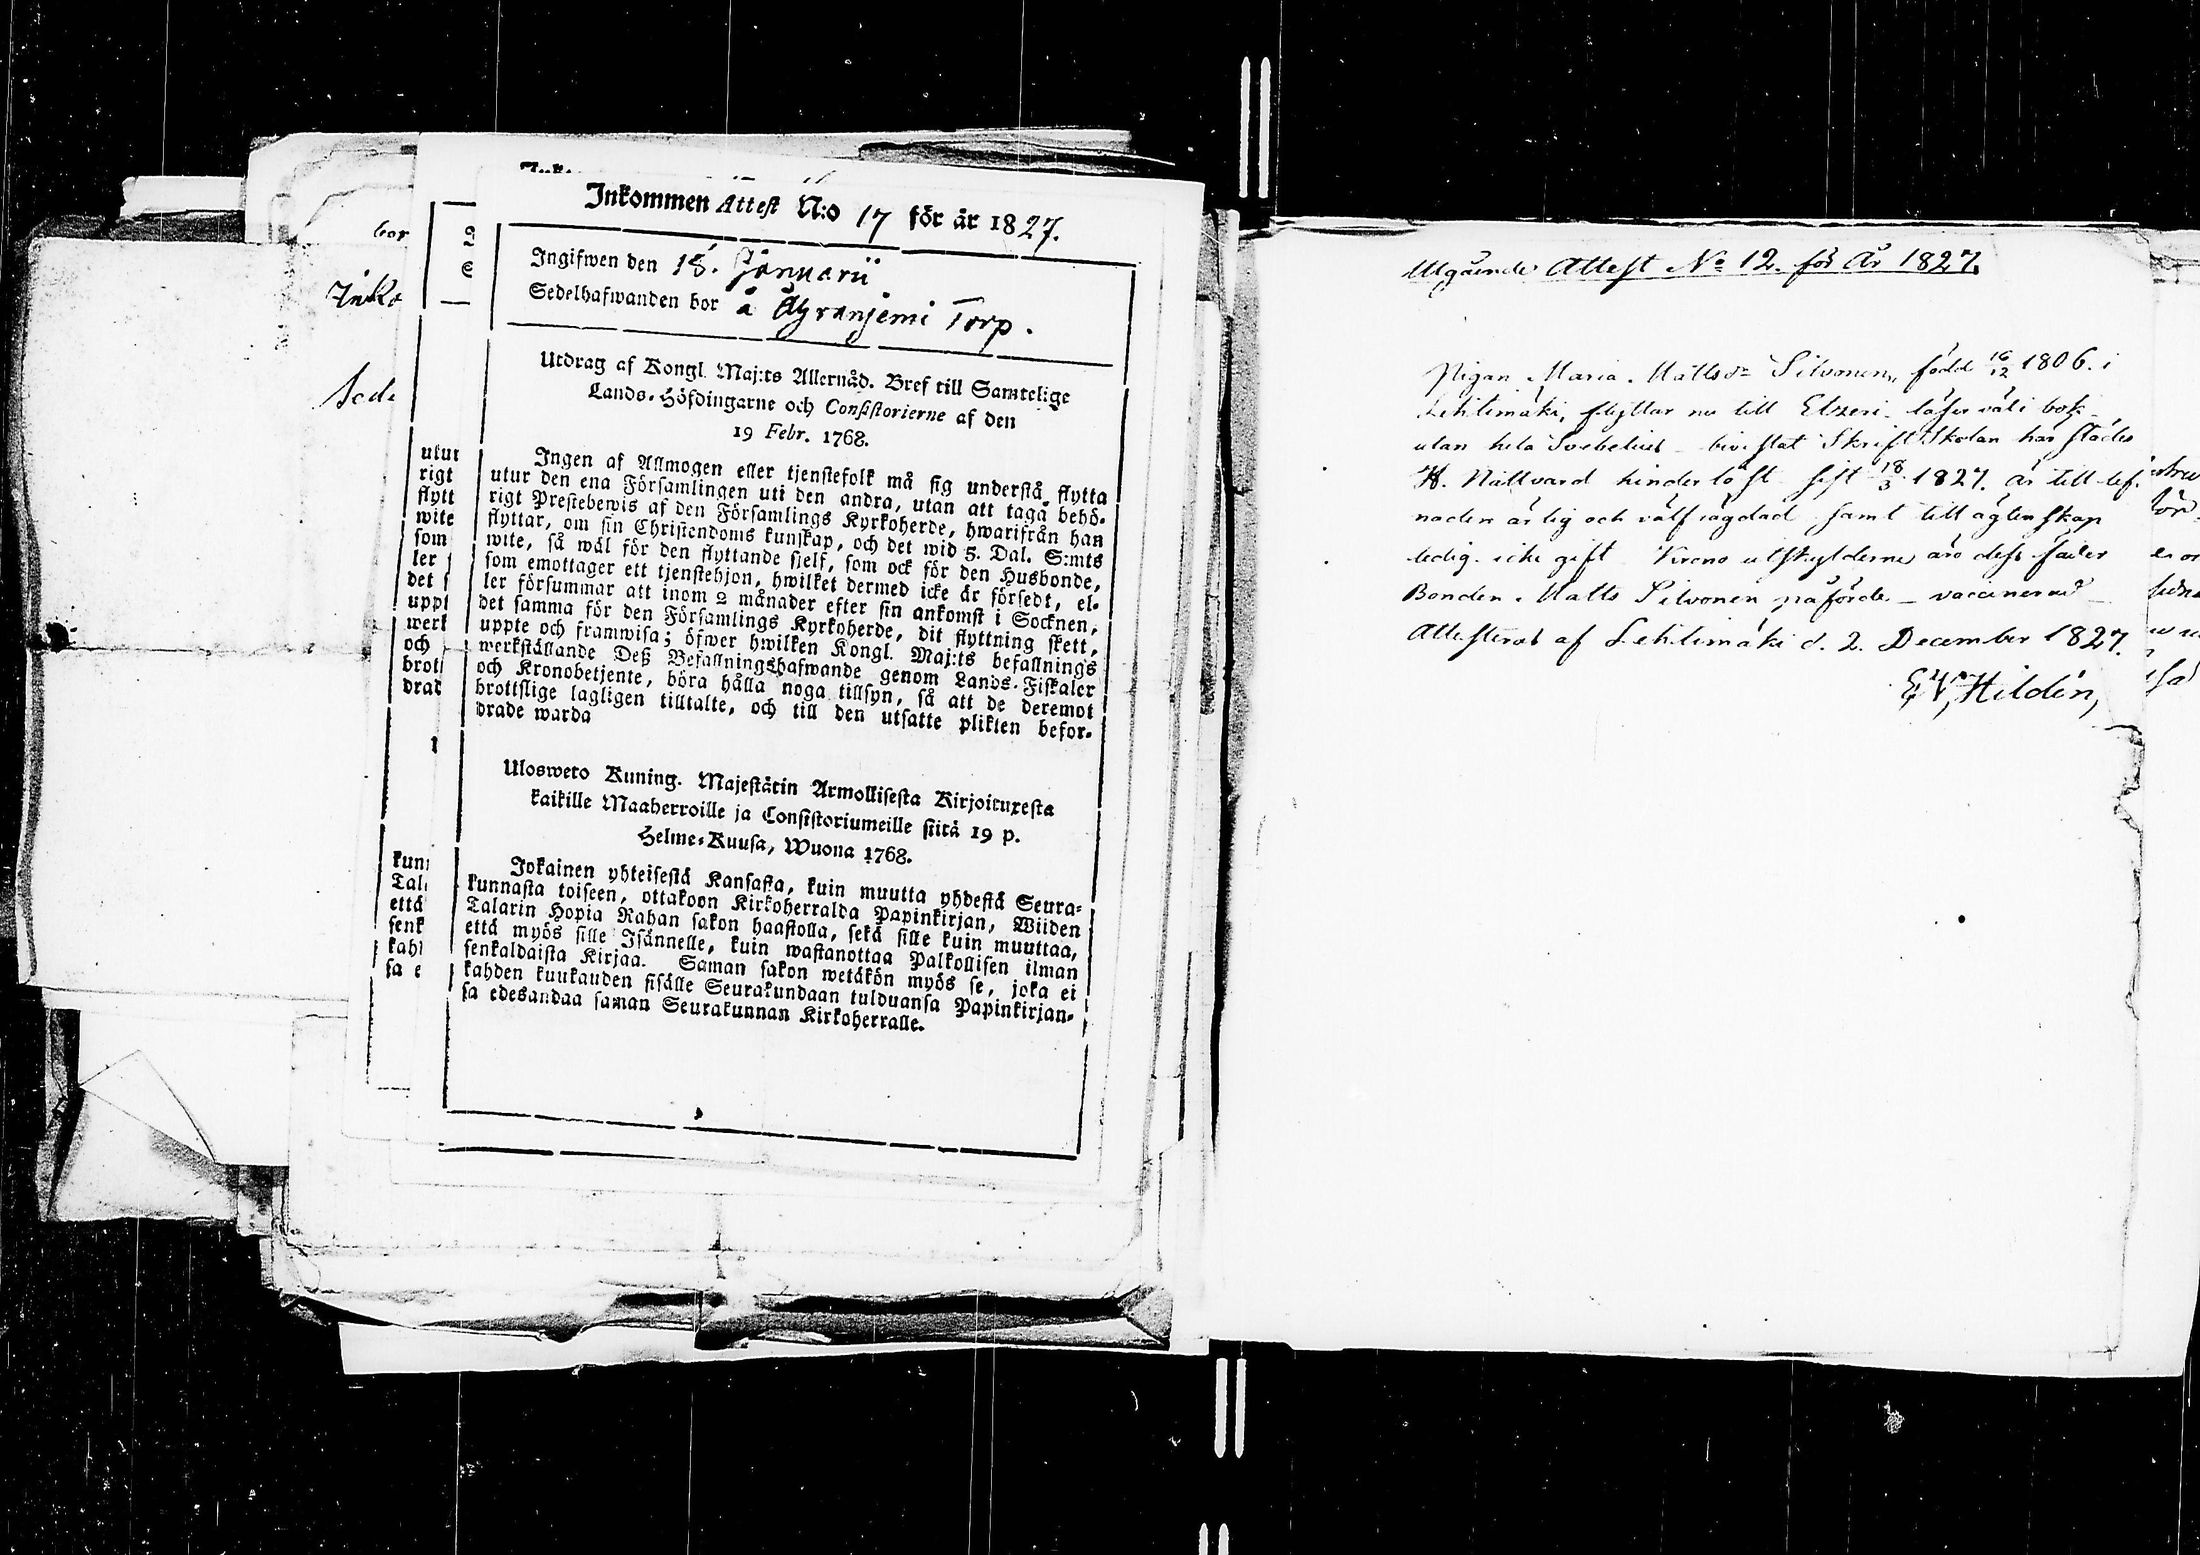 Inkommen Attest N:o 17 för år 1827.
Ingifwen den 18. Januarii
Sedelhafwanden bor å Äyränjemi Torp.
Utdrag af Kongl. Maj:ts Allernåd. Bref till Samtelige
Lands-Höfdingarne och Consistorierne af den
19 Febr. 1768.
Ingen af Allmogen eller tjenstefolk må sig understå flytta
utur den ena Församlingen uti den andra, utan att taga behö-
rigt Prestebewis af den Församlings Kyrkoherde, hwarifrån han
flyttar, om sin Christendoms kunskap, och det wid 5. Dal. S:mts
wite, så wäl för den flyttande sjelf, som ock för den Husbonde,
som emottager ett tjenstehjon, hwilket dermed icke är försedt, el-
ler försummar att inom 2 månader efter sin ankomst i Socknen,
det samma för den Församlings Kyrkoherde, dit flyttning skett,
uppte och framwisa; öfwer hwilken Kongl. Maj:ts befallnings
werkställande Deß Befallningshafwande genom Lands-Fiskaler
och Kronobetjente, böra hålla noga tillsyn, så att de deremot
brottslige lagligen tilltalte, och till den utsatte plikten befor-
drade warda
Ulosweto Kuning. Majestätin Armollisesta Kirjoituxesta
kaikille Maaherroille ja Consistoriumeille siitä 19 p.
Helme-Kuusa, Wuona 1768.
Jokainen yhteisestä Kansasta, kuin muutta yhdestä Seura-
kunnasta toiseen, ottakoon Kirkoherralda Papinkirjan, Wiiden
Talarin Hopia Rahan sakon haastolla, sekä sille kuin muuttaa,
että myös sille Isännelle, kuin wastanottaa Palkollisen ilman
senkaldaista Kirjaa. Saman sakon wetäkön myös se, joka ei
kahden kuukauden sisälle Seurakundaan tulduansa Papinkirjan-
sa edesandaa saman Seurakunnan Kirkoherralle.
Utgående Attest No 12. för År 1827.
Pigan Maria Mattsdr Silvonen, född 16/12 1806. i
Lehtimäki, flyttar nu till Etzeri läser väl i bok
utan hela Svebelius bivistat Skriftskolan har städes
H. Nattvard hinderlöst sist 18/3 1827. är till lef-
naden ärlig och välfrägdad samt till ägtenskap
ledig icke gift Krono utskylderne äro dess fader
Bonden Matts Silvonen påförde – vaccinerad –
Attesteras af Lehtimäki d. 2. December 1827.
E. V. Hildén,